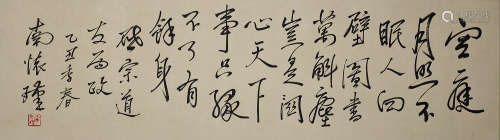 空庭
月照不
眠人四
壁圖書
萬斛塵
豈是關
心天下
事只緣
不了有
餘身
宗道
友政
乙丑季春
南懷瑾